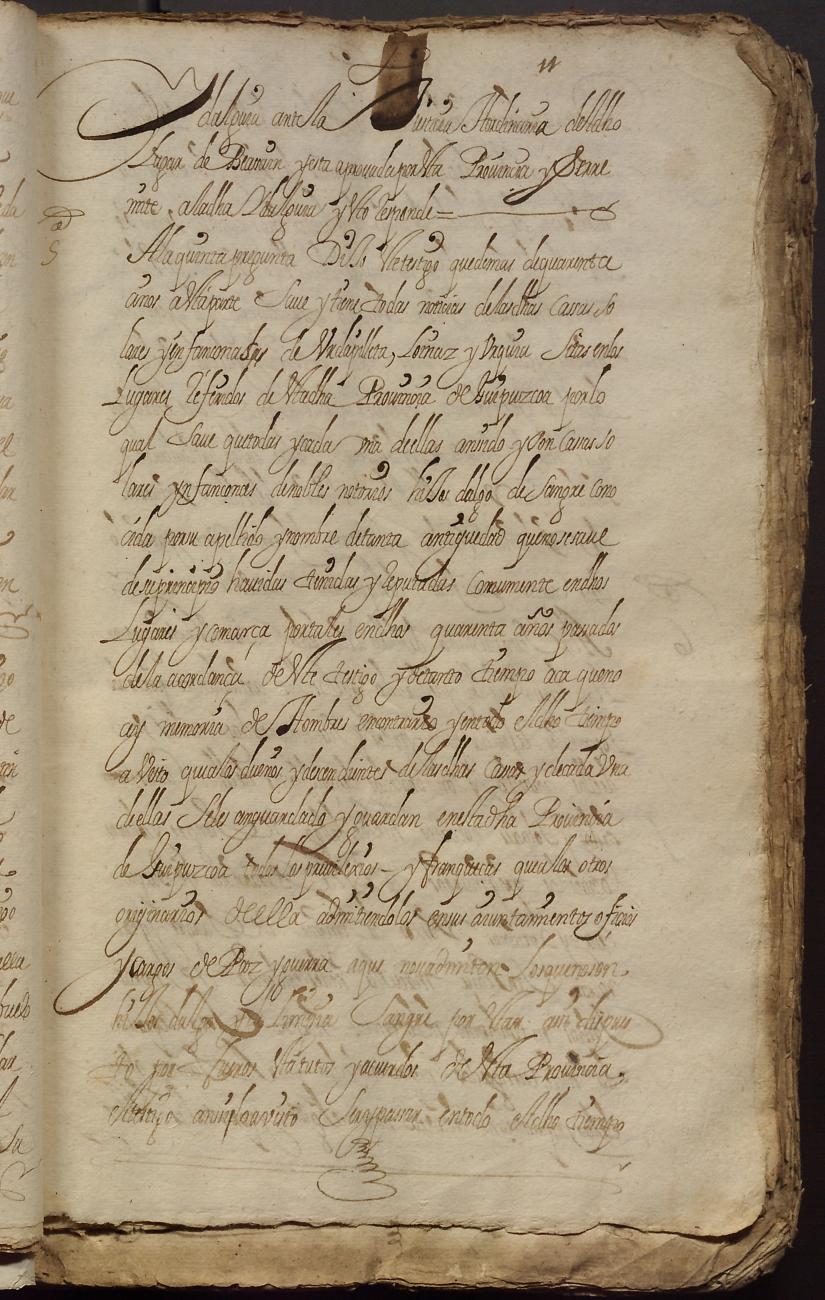 11
Ydalguia ante la Justicia Hordinaria del dho
Lugar de Beamin y esta aprovada por esta Provincia y Serre
mite a la dha Ydalguia y esto responde=
5
A la quinta pregunta Dijo este testigo que de mas de quarenta
años a esta parte Save y tiene todas noticias de las dhas Cassas So
lares ynfanconas de Urdapilleta, Loinaz y Urquia Sitas en los
Lugares referidos de esta dha Provincia de Guipuzcoa por lo
qual Save que todas y cada una de ellas an sido y son Cassas So
lares ynfançonas de nobles notorios hijos dalgo de Sangre cono
cida por su apellido y nombre de tanta antiguedad que no se save
de su principio havidas tenidas y Reputadas Comunmente en dhos
Lugares y comarca por tales en dhos quarenta años passados
de la acordança de este testigo y de tanto tiempo aca que no
ay memoria de Hombres en contrario y en todo el dho tiempo
a Visto que a los dueños y decendientes de las dhas Cassas y de cada Una
de ellas Se les an guardado y guardan en esta dha Provincia
de Guipuzcoa todos los privilexios y franqueças que a los otros
orijinarios de ella admitiendolos en sus aiuntamientos oficios
y cargos de Paz y guerra a que no se admiten Los que no son
hijos dalgo y de limpia Sangre por estar assi dispues
to por fueros estatutos y acuerdos de esta Provincia,
el testigo assi lo a visto Ser y passar en todo el dho tiempo